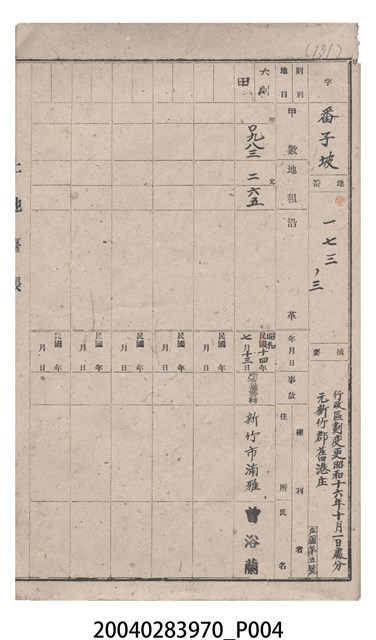 (131)
字 番子坡
地番 一七三ノ三
摘要 行政區劃變更昭和十六年十月一日處分
元新竹郡舊港庄
則別 六則
地目 田
甲數 甲 〇九八三
地租 元 二六五
沿革
年月日 昭和 民國十四年七月十三日
事故
權利者
住所 新竹市湳雅
氏名 曾浴蘭
民國 年 月 日
民國 年 月 日
民國 年 月 日
民國 年 月 日
民國 年 月 日
土地臺帳
20040283970_P004